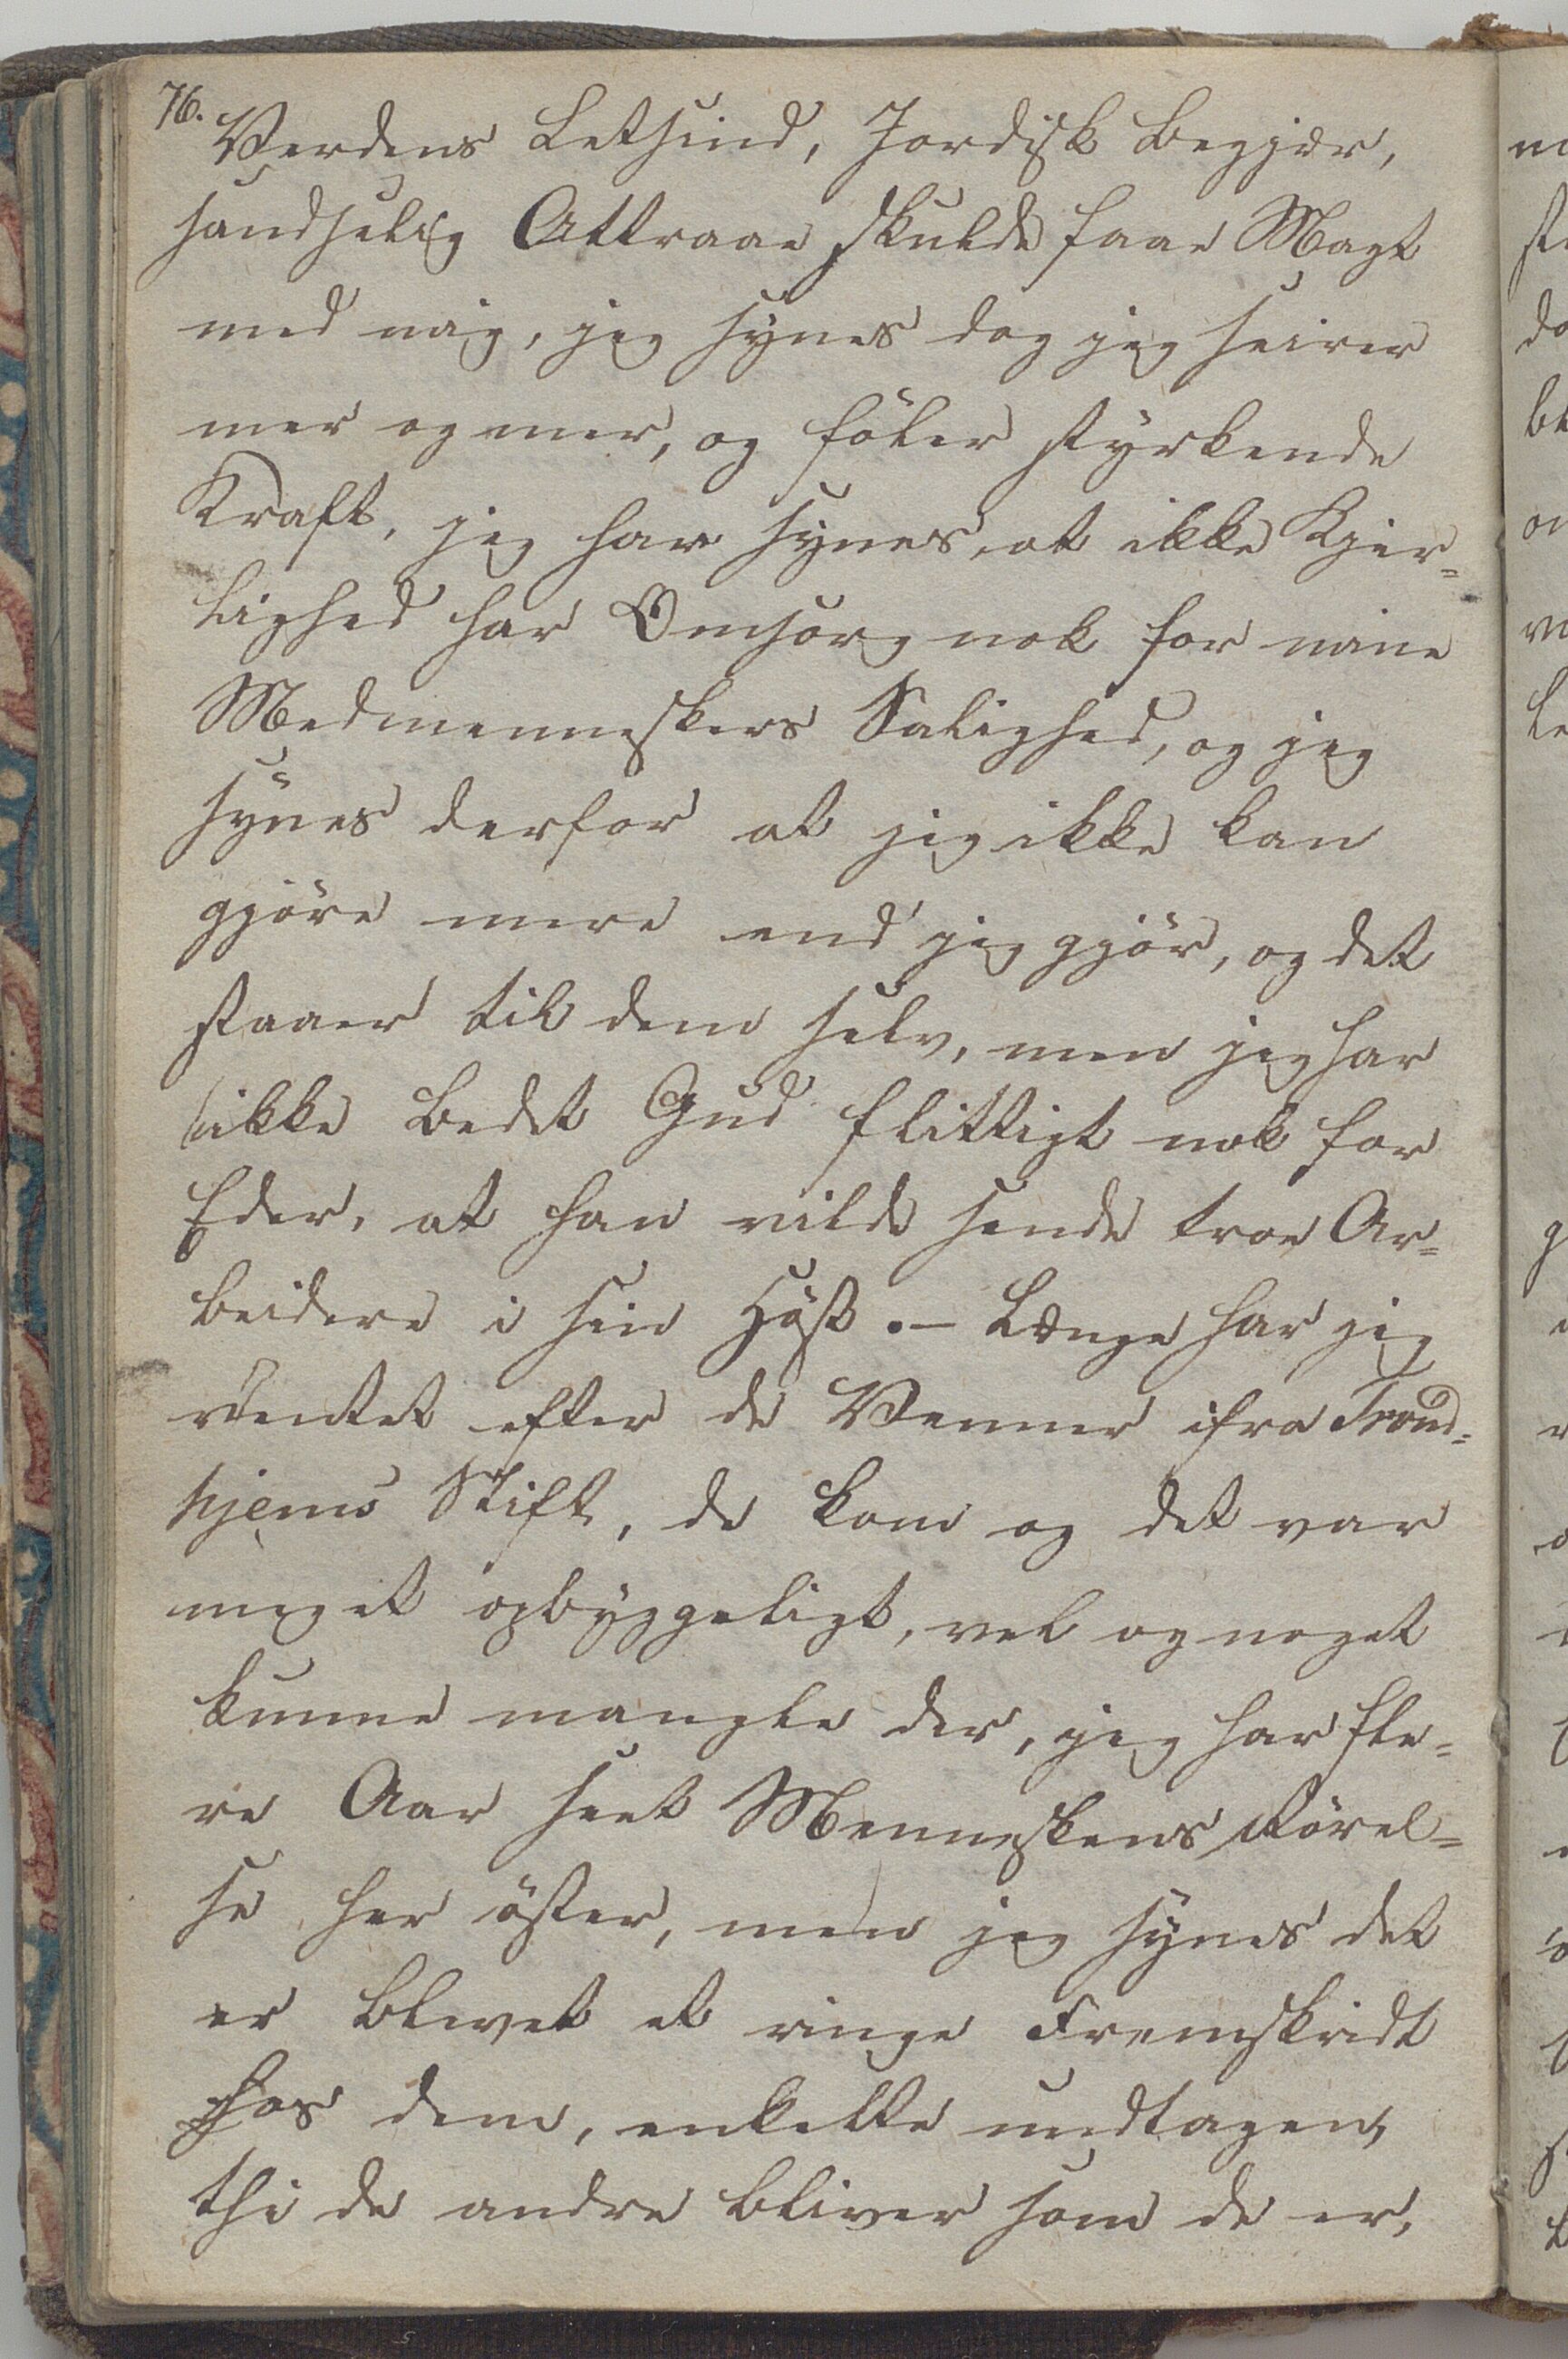 76.
Verdens Letsind, Jordisk Begjær,
sandselig Attraae skulde faae Magt
med mig, jeg synes dog jeg seirer
mer og mer, og föler styrkende
Kraft, jeg har synes, at ikke Kjer=
lighed har Omsorg nok for mine
Medmenneskers Salighed, og jeg
synes derfor at jeg ikke kan
gjöre mere end jeg gjör, og det
staaer til dem selv, men jeg har
ikke bedet Gud flittigt nok for
Eder, at han vilde sende troe Ar=
beidere i sin Höst. – Længe har jeg
ventet efter de Venner ifra Trond=
hjems Stift, de kom og det var
meget opbyggeligt, vel og noget
kunne mangle der, jeg har fle=
re Aar seet Menneskens Rörel=
se her öster, men jeg synes det
er blevet et ringe Fremskridt
hos dem, enkelte undtagen,
thi de andre bliver som de er,